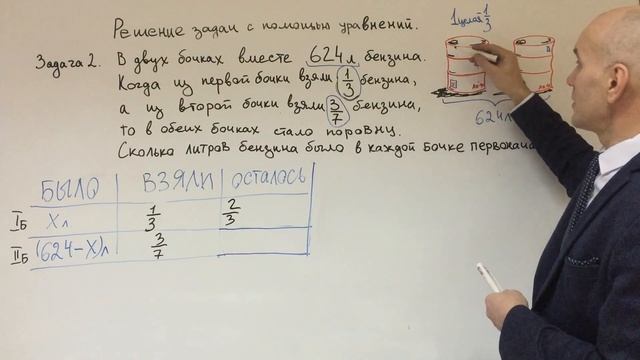 Решение задач с помощью уравнений.
Задача 2. В двух бочках вместе 624 л бензина.
Когда из первой бочки взяли 1/3 бензина,
а из второй бочки взяли 3/7 бензина,
то в обеих бочках стало поровну.
Сколько литров бензина было в каждой бочке первонача
1 целая 1/3
624л
БЫЛО ВЗЯЛИ ОСТАЛОСЬ
I Б X л 1/3 2/3
II Б (624-X)л 3/7